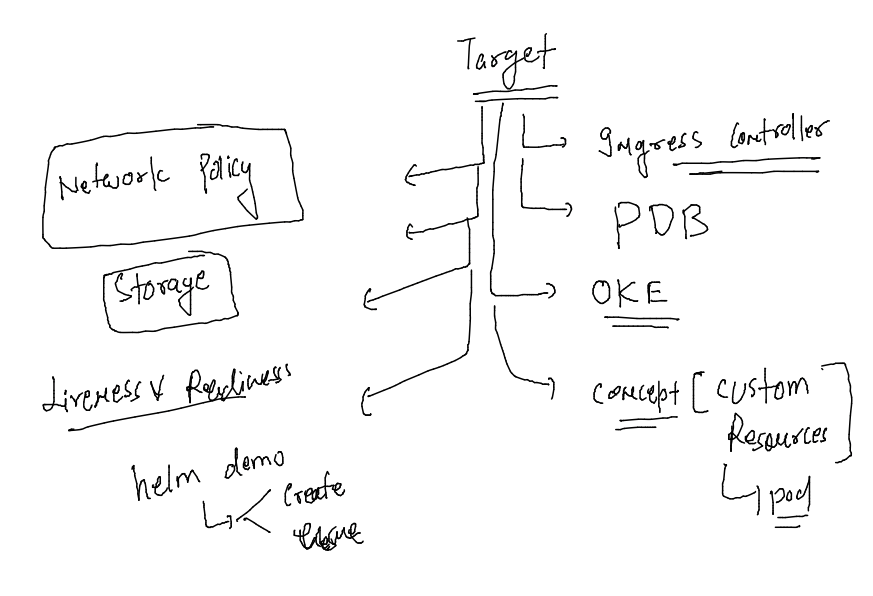 Target
Network Policy
Storage
Liveness & Readiness
helm demo
Create
Ingress Controller
PDB
OKE
Concept [Custom
Resources]
pod